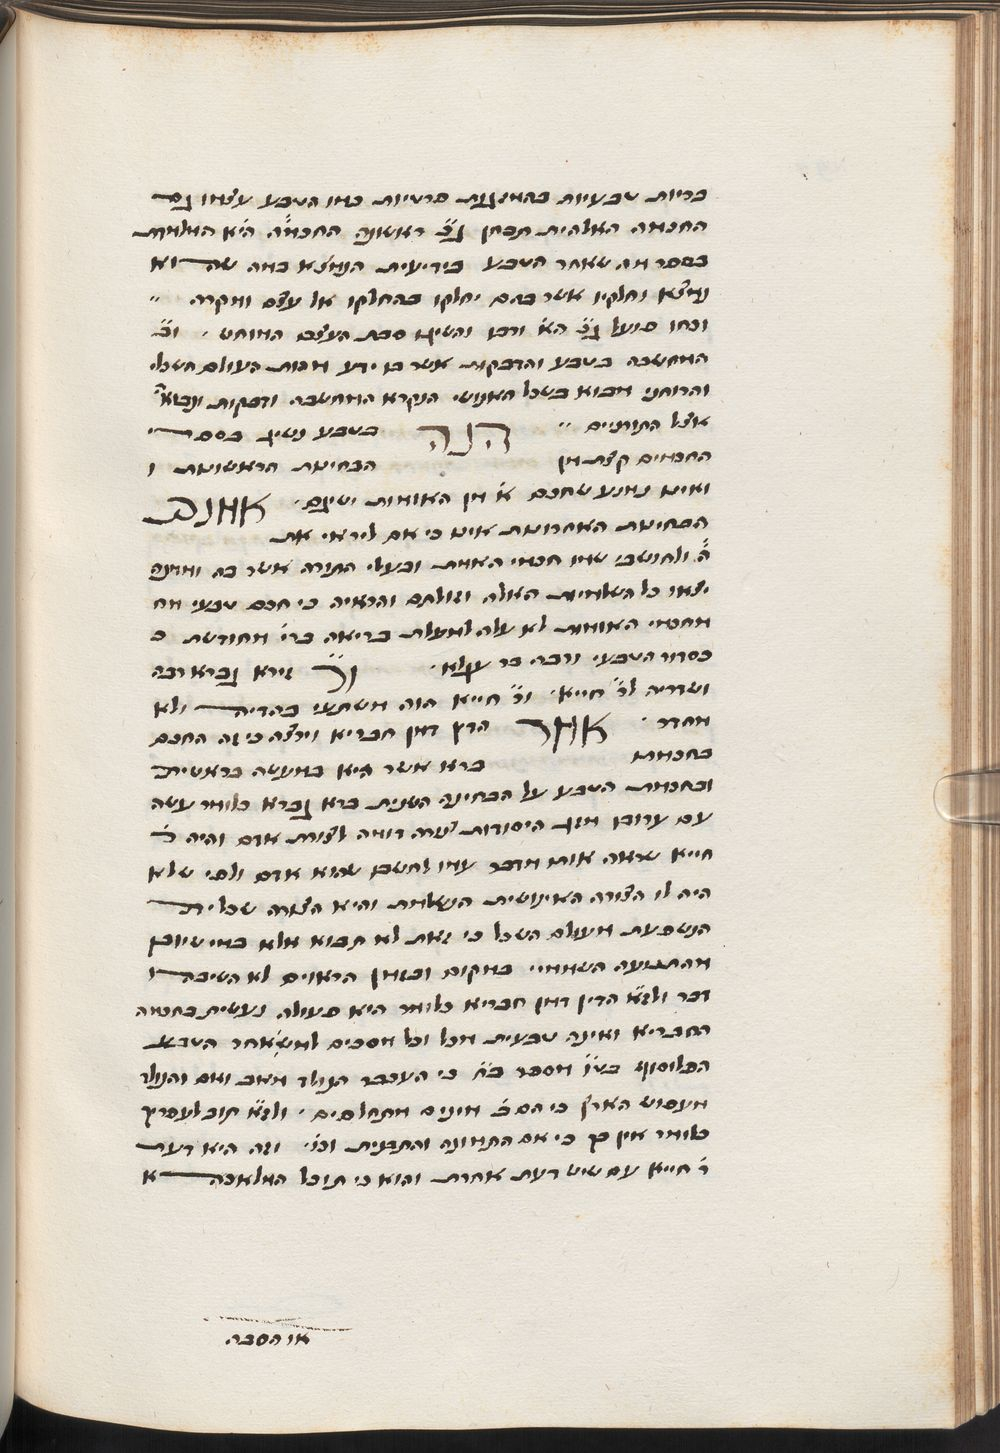 בריות טבעיות בהמזגת פרטיות כמו הטבע עצמו גם
החכמה האלהית תבחן ראשונה החכמה היא המלמדת
בספר מה שאחר הטבע בידיעת הנמצא במה שהוא
נמצא וחלקיו אשר בהם יחלקו בהחלקו אל עצם ומקרה
וכחו פועל והשיג סבת העצם המוחש
המחשבה בטבע והדבקות אשר בו ידע מהות העולם השכלי
והרוחני מבוא בשכל האנושי הנקרא המחשבה ודבקות
אצל התוריים הנה בטבע נשיג בספרי
החכמים קצת מן הבחינות הראשונות ו
ואינו נמנע שחכם א' מן האומות ישיגם אמנם
הבחינות האחרונות אינו כי אם ליראי את
ה' ולחושבי שמו חכמי האמת ובעלי התורה אשר בה וממנה
יצאו כל השלמיות האלה וזולתם והראיה כי חכם טבעי מח
מחכמי האומות לא עלה למעלת בריאה ברי' מחודשת כ
כסדור הטבעי ודבר בר עקלא זירא גברא רבה
ושדריה לר' חייא ור' חייא הוה משתעי בהדיה ולא
מהדר אמר הדין דמן חבריא וירצה כי זה החכם
בחכמת ברא אשר היא במעשה בראשית
ובחכמת הטבע על הבחינה השנית ברא גברא כלומר עשה
עם ערוב מזג היסודות צורה דומה לצורת אדם והיה ר'
חייא שראה אותו מדבר עמו לחשבו שהוא אדם ולפי שלא
היה לו הצורה האינושית הנשלמת והיא הצורה שכלית
הנשפעת מעולם השכל כי זאת לא תבוא אלא במי שיוכן
מהתנועה השמימיי במקום ובזמן הראוים לא השיבהו
דבר ולז"א הדין דמן חבריא כלומר היא פעולה נעשית בחכמה
החבריא ואינה טבעית מכל וכל מסכים למה שאחר הטבע
הפלוסוף בט"ו מספר ב"ח כי העכבר הנולד מאב ואם והנולד
מעפוש הארץ כי הם ב' מינים מתחלפים ולז"א תוב לעפריך
כלומר אין בך כי אם התמונה והתבנית וכו' וזה היא דעת
ר' חייא עם שיש דעת אחרת והוא כי תוכל המלאכה א
או הסבה